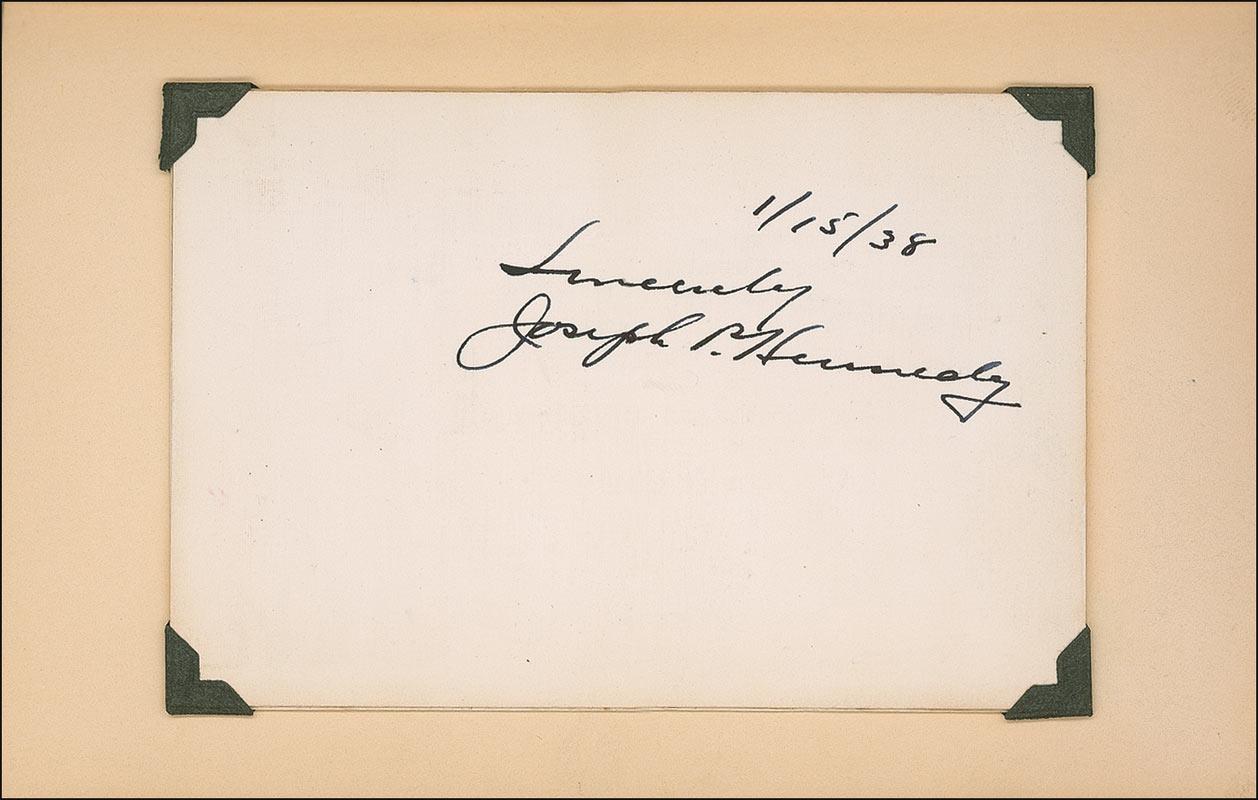 1/15/38
Sincerely
Joseph P. Kennedy